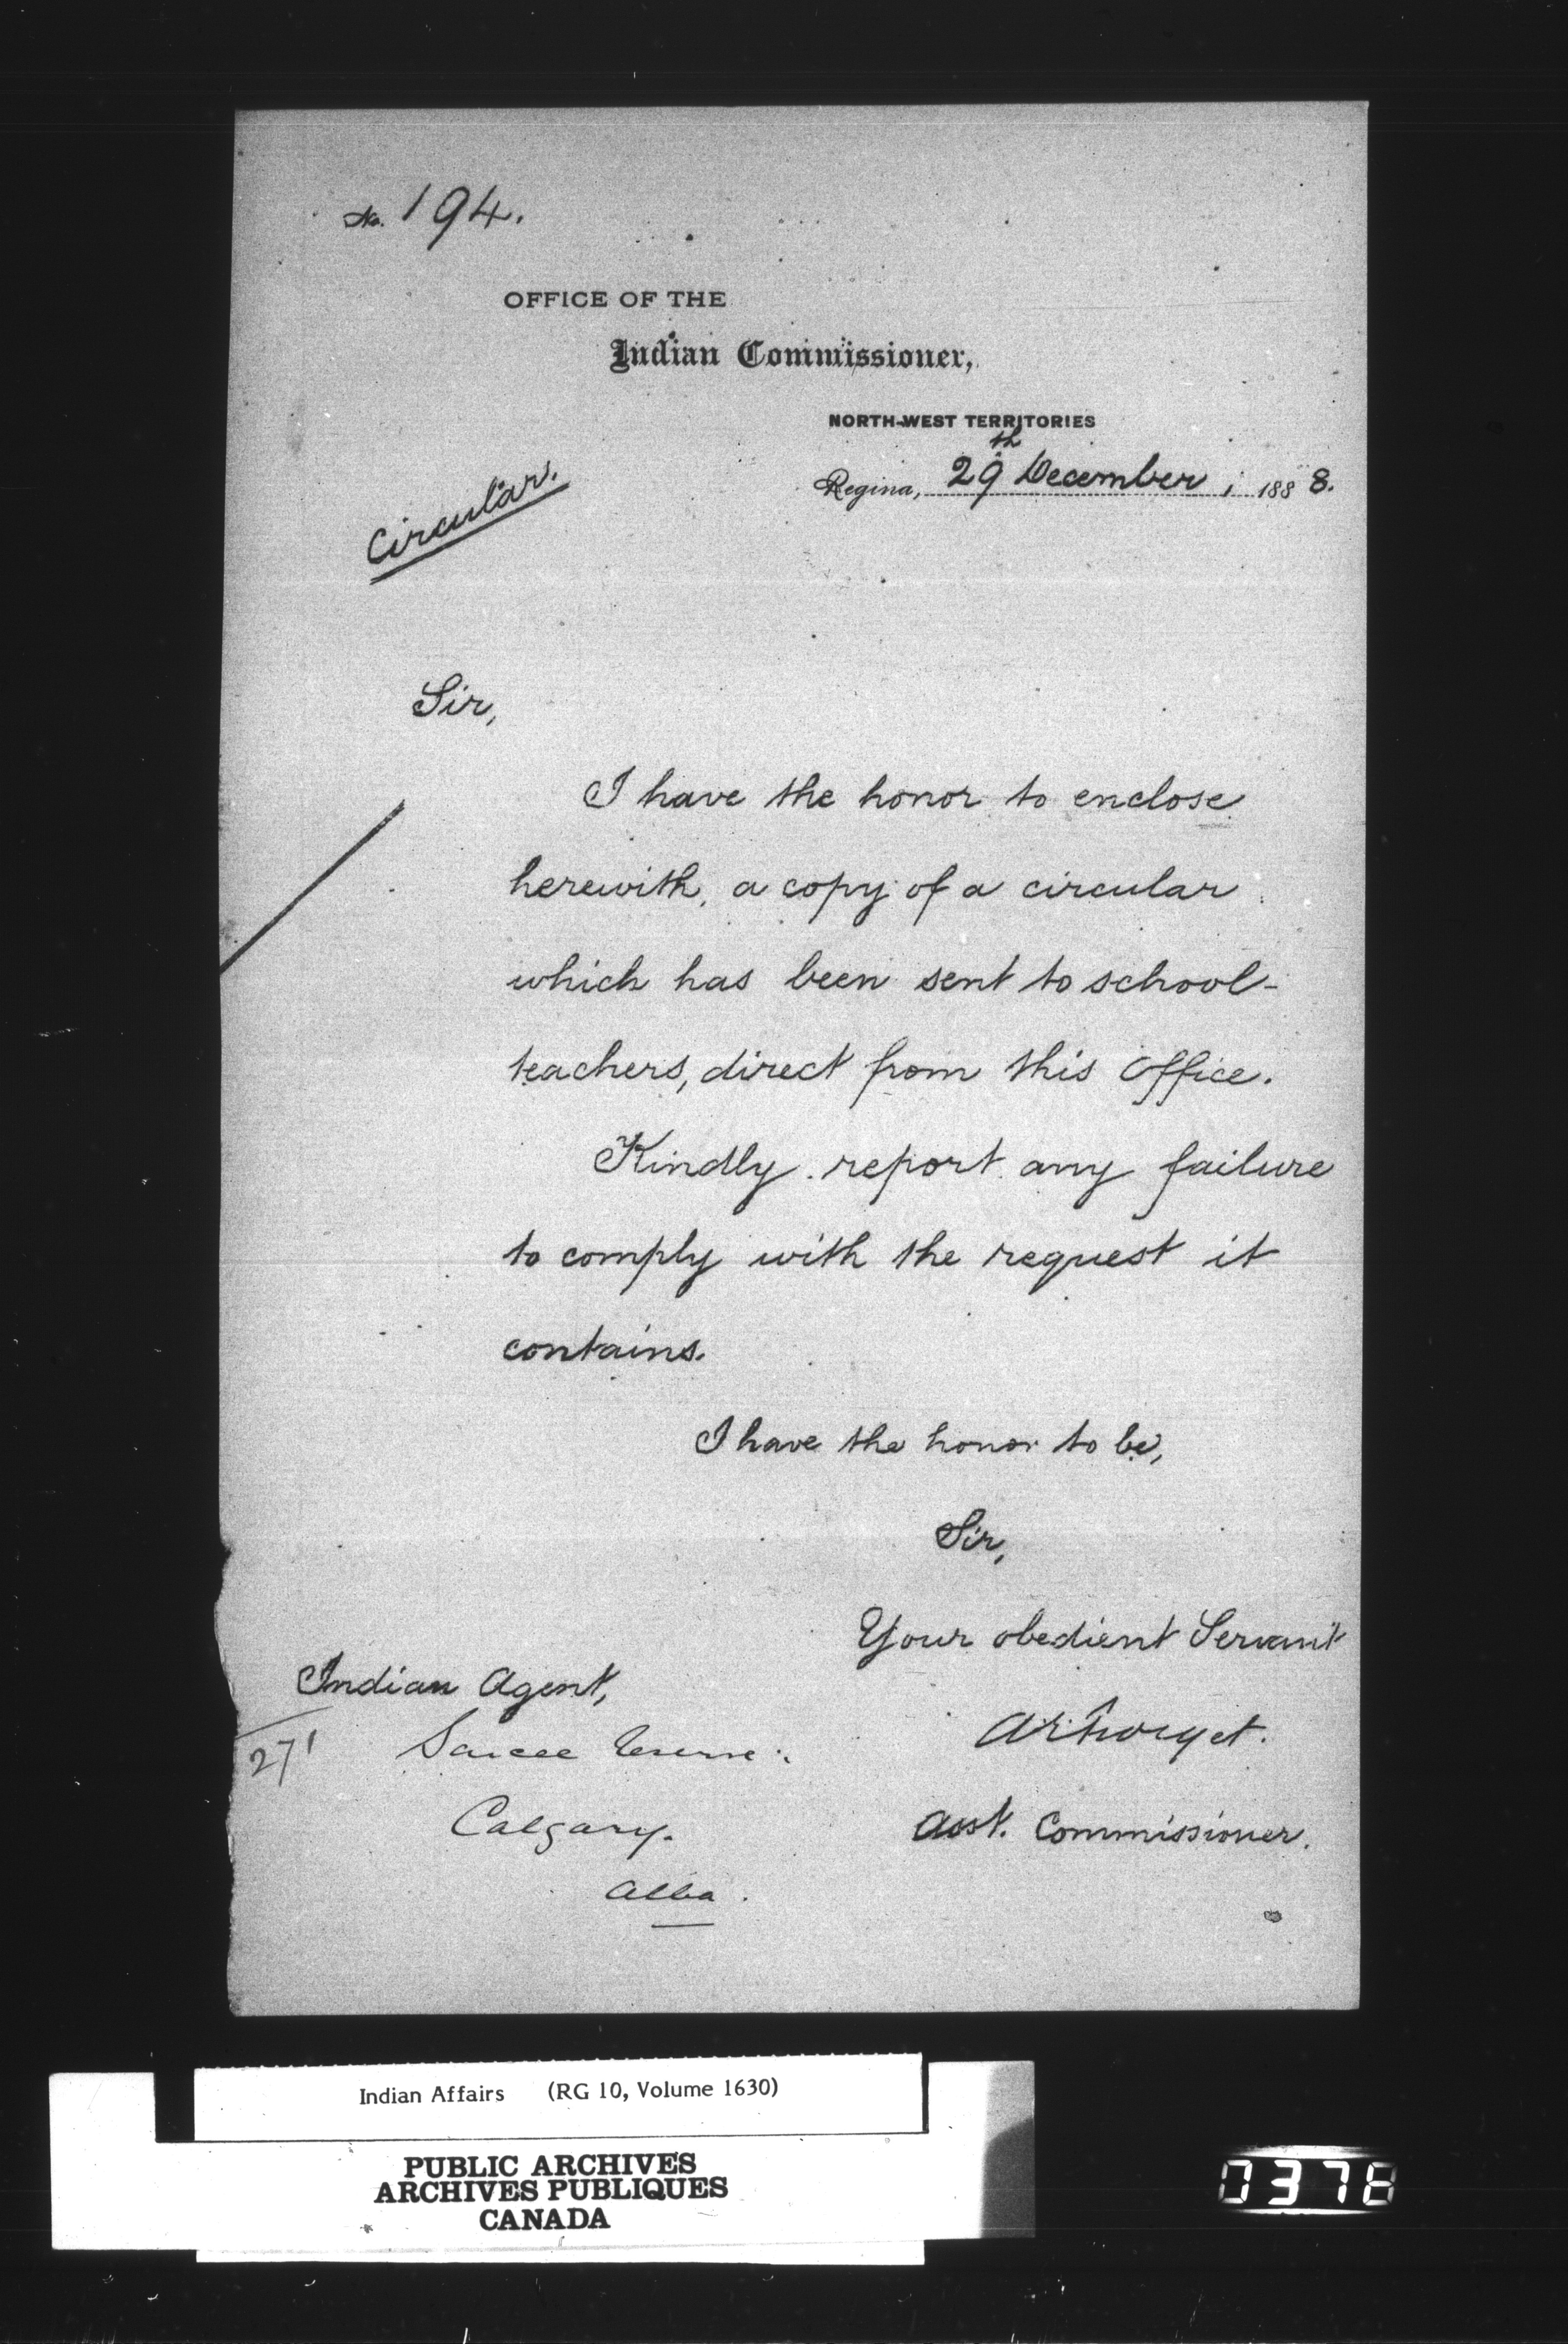 No. 194.
OFFICE OF THE
Indian Commissioner,
NORTH-WEST TERRITORIES
Regina, 29th December, 1888.
Circular.
Sir,
I have the honor to enclose
herewith, a copy of a circular
which has been sent to school-
teachers, direct from this Office.
Kindly report any failure
to comply with the request it
contains.
I have the honor to be,
Sir,
Your obedient Servant
Indian Agent,
A E Forget.
27
Sarcee Reserve.
Calgary.
Asst. Commissioner.
Alba.
Indian Affairs (RG 10, Volume 1630)
PUBLIC ARCHIVES
ARCHIVES PUBLIQUES
CANADA
0378